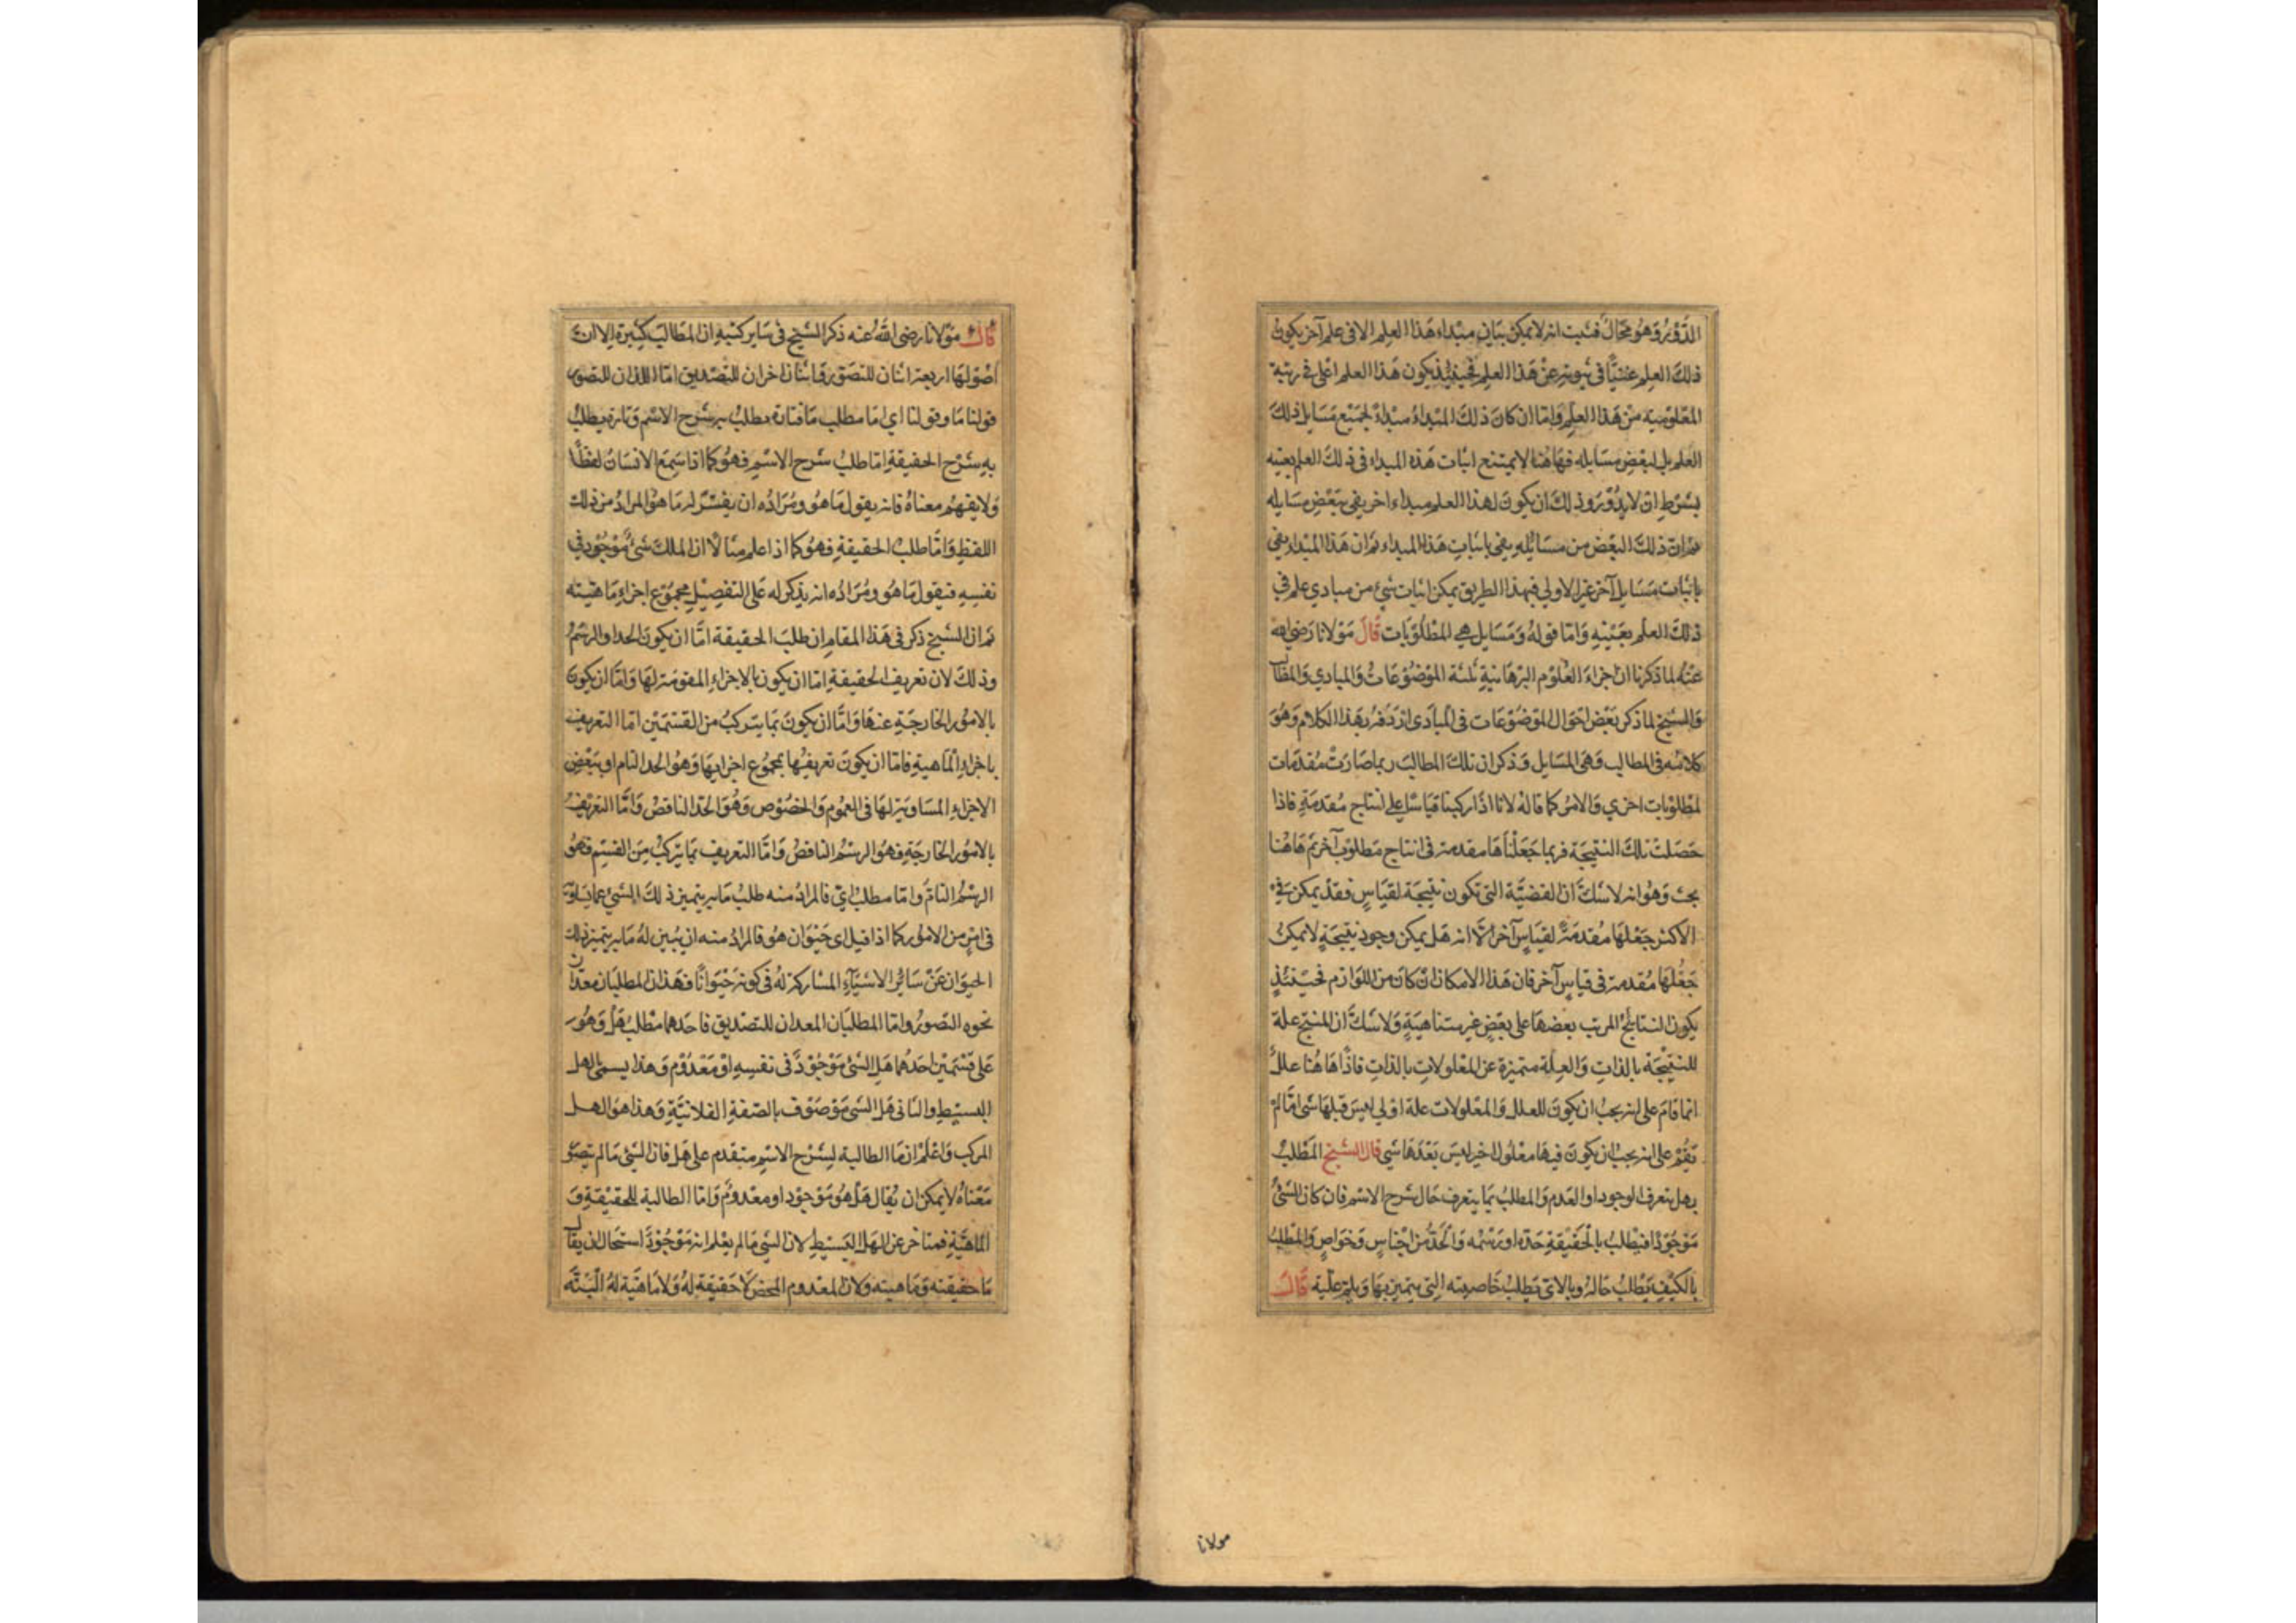 الدَّوْرُ وَهُوَ مُحَالٌ فثبت انه لا يمكن بيان مبداء هذا العلم الا فى علم آخر يكون
ذلك العلم غنيًّا فى ثبوته عن هذا العلم فحينئذ يكون هذا العلم اعلى فى رتبة
المعلومية من هذا العلم وَامّا ان كانَ ذلكَ المبداءُ مبداءً لجميع مسايل ذلكَ
العلم بل لبعض مسايله فهاهنا لا يمتنع اثبات هذه المبداء فى ذلك العلم بعينه
بشرط ان لا يدُوْرَ وذلك ان يكون لهذا العلم مبداء اخر يفى ببَعْض مسايله
ثم ان ذلكَ البَعْض من مسائله يفى باثبات هذا المبداء ثم ان هذا المبداء يفى
باثبات مَسَايل آخر غير الاولي فبهذا الطريق يمكن اثبات شئ من مبادي علم في
ذلكَ العلم بعَيْنِه وَامّا قولهُ وَمَسَايل هي المَطْلُوْبَات قَالَ مَوْلانا رَضى الله
عَنْهُ لما ذكرنا ان اجزاءَ العُلُوْم البُرهَانيةِ ثلثة الموْضُوْعَاتُ وَالمبادي وَالمطالب
وَالشيخ لما ذكر بَعْض احْوَال الموْضُوْعَات فى المبادى اردَفهُ بهَذا الكلام وَهُوَ
كلامُه فى المطالب وَهَى المسَايل وَذكر ان تلكَ المطالبَ ربما صَارَتْ مُقدمَات
لمطلُوْبَات اخري وَالامرُ كما قالهُ لانا اذا ركبنا قياسًا على انتاج مُقدمَةٍ فاذا
حَصَلتْ تلكَ النتيجَة فربما جَعَلْنَاهَا مقدمة فى انتاج مَطلوْب آخر ثم هَاهُنا
بحث وَهُوَ انه لا شكَّ ان القضيَّة التى تكون نتيجَة لقيَاسٍ فقدْ يمكن فى
الاكثر جَعْلهَا مُقدمَةً لقيَاسٍ آخر الّا انه هَل يمكن وجود نتيجَةٍ لا يمكنُ
جَعْلهَا مُقدمة فى قياسٍ آخر فان هَذا الامكان ان كانَ من اللوَازم فحيْنَئذٍ
يكون النتايجُ المرتب بعضهَا على بعْضٍ غير متناهيَةٍ وَلا شكَّ ان المنتج علة
للنتيْجَة بالذاتِ وَالعِلة متميزة عن المعْلولاتِ بالذاتِ فاذًا هَاهُنا عللٌ
انما قامَ على انه يجبُ ان يكونَ للعلل وَالمعْلولات علة اوْلي ليسَ قبلهَا شى امّا لم
تقُمْ على انه يجبُ ان يكونَ فيهَا معْلولٌ اخير ليسَ بَعْدَهَا شي قال الشيخ المَطْلبُ
بهل يتعرف الوجود او العَدم وَالمطلبُ بمَا يتعرف حَال شرح الاسْم فان كان الشئُ
مَوْجُوْدًا فيطْلب بالْحَقيْقةِ حَدّه او رَسْمُه وَالْحَدُّ من اجْناسٍ وَخوَاصٍ وَالمطلبُ
بالكيْفِ يَطْلبُ حَالهُ وبالاىّ يَطلبُ خَاصيته التى يتميز بهَا وَبلم علّته قَالَ
مولانا
قالَ مَوْلانا رضى اللهُ عنه ذكر الشيخ فى سَاير كتبهِ ان المطالبَ كثيرة الا انَّ
اصُوْلهَا اربعة اثنان للتصَوّر وَاثنان اخران للتصْديق امّا اللذان للتصور
قولنا مَا وقولنا اي امّا مطلب مَا فتارة يطلبُ به شرْح الاسْم وَتارة يطلبُ
بهِ شرْح الحقيقةِ امّا طلبُ شرح الاسْم فهُوَ كما اذا سَمعَ الانسَانُ لفظًا
وَلا يفهَمُ معناهُ فانه يقول مَا هُوَ ومُرَادُه ان يفسّر له مَا هُوَ المرادُ من ذلك
اللفظِ وَامّا طلبُ الحقيقةِ فهُوَ كما اذا علم مثالًا ان الملكَ شئٌ مَوْجُوْد فى
نفسِه فيقول مَا هُوَ ومُرَادُه انه يذكر له عَلى التفصِيْل مجمُوْع اجزاءِ مَاهيته
ثم ان الشيخ ذكر فى هَذا المقام ان طلبَ الحقيقة امَّا ان يكونَ الحد او الرسْمُ
وذلكَ لان تعريف الحقيقة امّا ان يكون بالاجزاءِ المقومة لهَا وَامّا ان يكونَ
بالامُوْر الخارجَةِ عنهَا وَامَّا ان يكونَ بمَا يتركبُ من القسْمَيْن امّا التعريف
باجزاءِ المَاهيةِ فامّا ان يكونَ تعريفُها بمجمُوْع اجزايهَا وَهُوَ الحد التام او ببَعْض
الاجزاءِ المسَاوية لهَا فى العمُوم وَالخصُوْص وَهُوَ الحَدّ الناقصُ وَامَّا التعريفُ
بالامُوْر الخارجَةِ وهُوَ الرسْمُ الناقصُ وَامَّا التعريف بمَا يتركبُ مِنَ القسم فهُوَ
الرسْمُ التامّ وَامّا مطلبُ ايّ فالمرادُ منه طلبُ مَا به يتميز ذلكَ الشئ عما يساويه
فى امْرٍ من الامُوْر كما اذا قيل اى حَيْوَان هُوَ فالمرادُ منه ان يُبين لهُ مَا به يتميز ذلك
الحيوَان عَنْ سَائر الاشيَآءِ المشاركة لهُ فى كونه حَيْوَانًا فهَذان المطلبان معدّان
نحوه التصورُ وامّا المطلبَان المعدان للتصْديق فاحَدهما مطْلبُ هَلْ وَهُوَ
عَلى قسْمَيْن احَدُهما هَل الشئ مَوْجُوْدٌ فى نفسِه اوْ مَعْدُوْم وَهذا يسمى الهل
البسيْط والثانى هَل الشى مَوْصُوْف بالصّفةِ الفلانيَّةِ وَهذا هوَ الهل
المركب وَاعْلمْ ان مَا الطالبة لِشرْح الاسْم متقدم على هَل فان الشئ مَا لم يتصَوّر
مَعْنَاهُ لا يمكن ان يُقال هَلْ هُوَ مَوْجوْد او معْدوْمٌ وَامّا الطالبة للحقيْقةِ وَ
المَاهيَّةِ فمتاخر عن الهَل البَسيْطِ لان الشى مَا لم يعْلم انه مَوْجُوْدَ استحَال ان يقال
مَا حقيقته وَمَاهيته وَلان المعْدوم المحض لَا حَقيقة لهُ وَلا مَاهيَّة لهُ الْبَتَّه